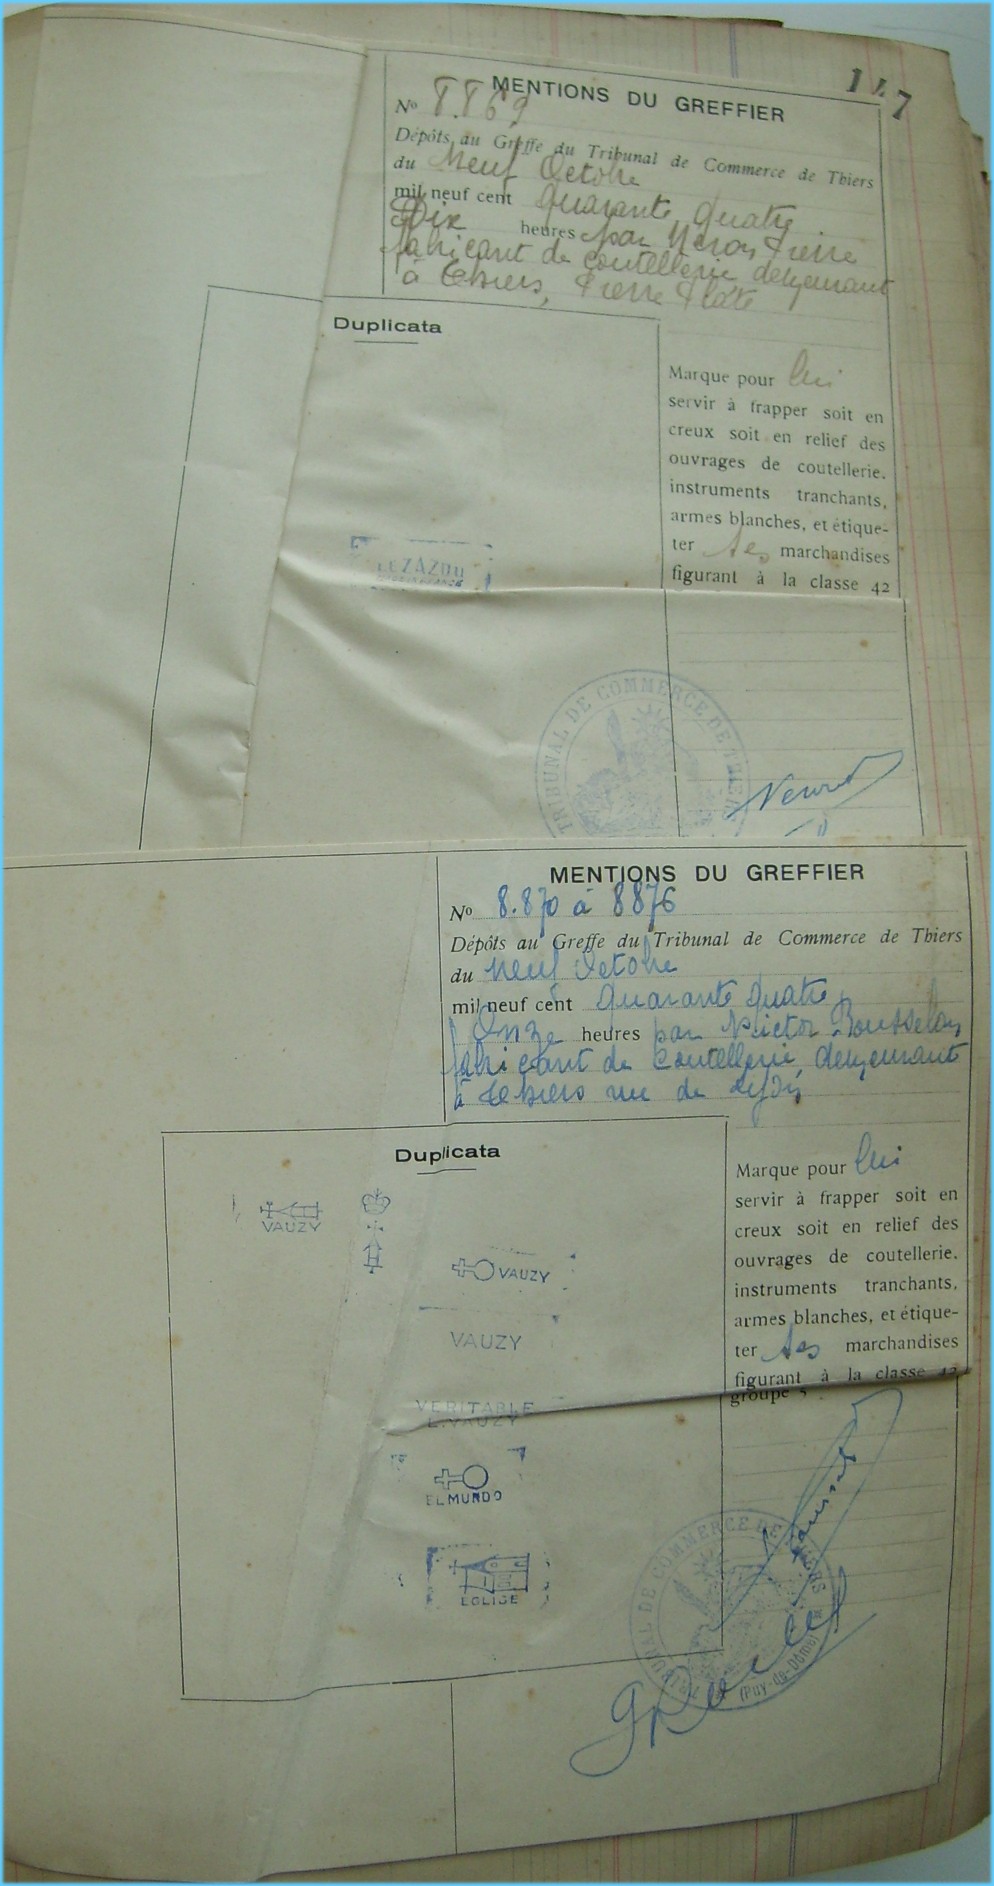 147
MENTIONS DU GREFFIER
No 8.869
Dépôts au Greffe du Tribunal de Commerce de Thiers
du Neuf Octobre
mil neuf cent quarante quatre
Dix heures par Néron Pierre
fabricant de coutellerie demeurant
à Thiers, Pierre Plate
Duplicata
Marque pour lui
servir à frapper soit en
creux soit en relief des
ouvrages de coutellerie,
instruments tranchants,
armes blanches, et étique-
ter ses marchandises
figurant à la classe 42
LE ZAZOU
TRIBUNAL DE COMMERCE DE THIERS
MENTIONS DU GREFFIER
No 8.870 à 8876
Dépôts au Greffe du Tribunal de Commerce de Thiers
du Neuf Octobre
mil neuf cent quarante quatre
Onze heures par Victor Rousselon
fabricant de coutellerie, demeurant
à Thiers rue de Lyon
Duplicata
Marque pour lui
servir à frapper soit en
creux soit en relief des
ouvrages de coutellerie.
instruments tranchants,
armes blanches, et étique-
ter ses marchandises
figurant à la classe 42
groupe 5
VAUZY
H
VAUZY
VAUZY
VERITABLE
L.VAUZY
EL MUNDO
EGLISE
TRIBUNAL DE COMMERCE DE THIERS
(Puy-de-Dôme)